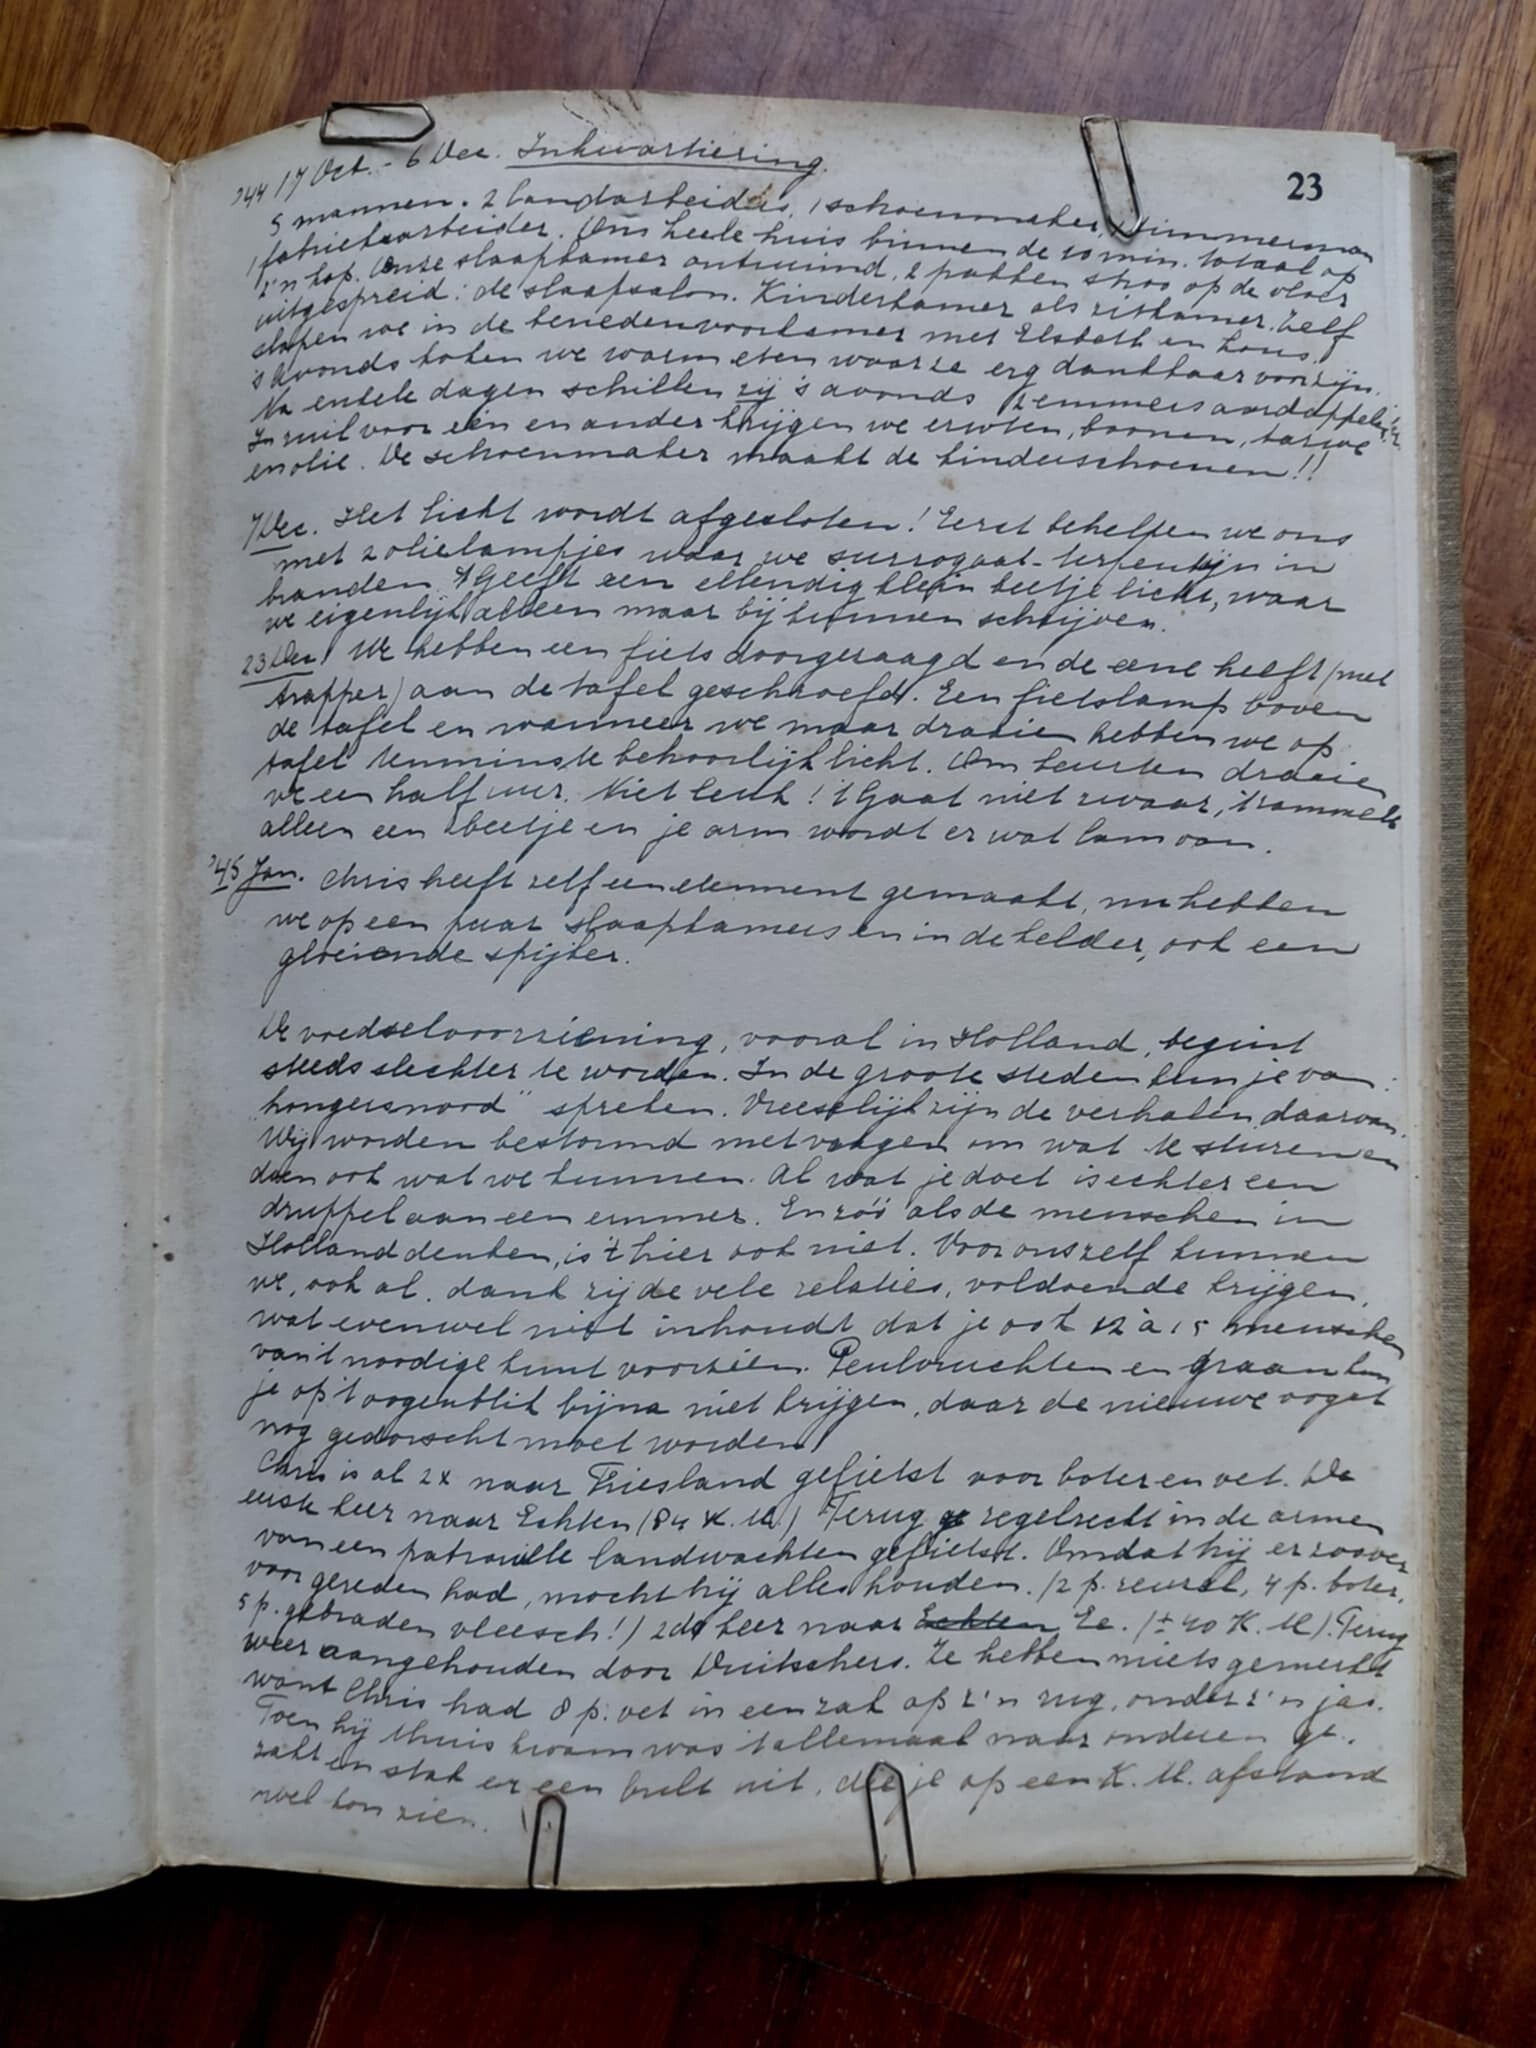 '44 17 Oct. - 6 Dec. Inkwartiering.
23
5 mannen. 2 landarbeiders, 1 schoenmaker, 1 timmerman
1 fabrieksarbeider. Ons heele huis binnen de 10 min. totaal op
z'n kop. Onze slaapkamer ontruimd, 2 pakken stroo op de vloer
uitgespreid: de slaapsalon. Kinderkamer als zitkamer. Zelf
slapen we in de benedenvoorkamer met Elsbeth en Lous.
's Avonds koken we warm eten waar ze erg dankbaar voor zijn.
Na enkele dagen schillen zij 's avonds 2 emmers aardappelen
In ruil voor een en ander krijgen we erwten, boonen, tarwe
en olie. De schoenmaker maakt de kinderschoenen!!
7 Dec. Het licht wordt afgesloten! Eerst behelpen we ons
met 2 olielampjes waar we surrogaat-terpentijn in
branden. 't Geeft een ellendig klein beetje licht, waar
we eigenlijk alleen maar bij kunnen schrijven.
23 Dec. We hebben een fiets doorgezaagd en de eene helft (met
trapper) aan de tafel geschroefd. Een fietslamp boven
de tafel en wanneer we maar draaien hebben we op
tafel tenminste behoorlijk licht. Om beurten draaien
we een half uur. Niet leuk! 't Gaat niet zwaar, 't rammelt
alleen een beetje en je arm wordt er wat lam van.
'45 Jan. Chris heeft zelf een element gemaakt, nu hebben
we op een paar slaapkamers en in de kelder, ook een
gloeiende spijker.
De voedselvoorziening, vooral in Holland, begint
steeds slechter te worden. In de groote steden kun je van
"hongersnood" spreken. Vreeselijk zijn de verhalen daarvan.
Wij worden bestormd met vragen om wat te sturen en
doen ook wat we kunnen. Al wat je doet is echter een
druppel aan een emmer. En zóó als de menschen in
Holland denken, is 't hier ook niet. Voor ons zelf kunnen
we, ook al dank zij de vele relaties, voldoende krijgen,
wat evenwel niet inhoudt dat je ook 12 à 15 menschen
van 't noodige kunt voorzien. Peulvruchten en graan kun
je op 't oogenblik bijna niet krijgen, daar de nieuwe oogst
nog gedorscht moet worden.
Chris is al 2x naar Friesland gefietst voor boter en vet. De
eerste keer naar Echten (84 K.M.) Terug regelrecht in de armen
van een patrouille landwachten gefietst. Omdat hij er zoover
voor gereden had, mocht hij alles houden. (2 p. reuzel, 4 p. boter,
5 p. gebraden vleesch!) 2de keer naar Echten Ee. (± 90 K.M.). Terug
weer aangehouden door Duitschers. Ze hebben niets gemerkt
want Chris had 8 p. vet in een zak op z'n rug, onder z'n jas.
Toen hij thuis kwam was 't allemaal naar onderen ge-
zakt en stak er een bult uit, die je op een K.M. afstand
wel kon zien.